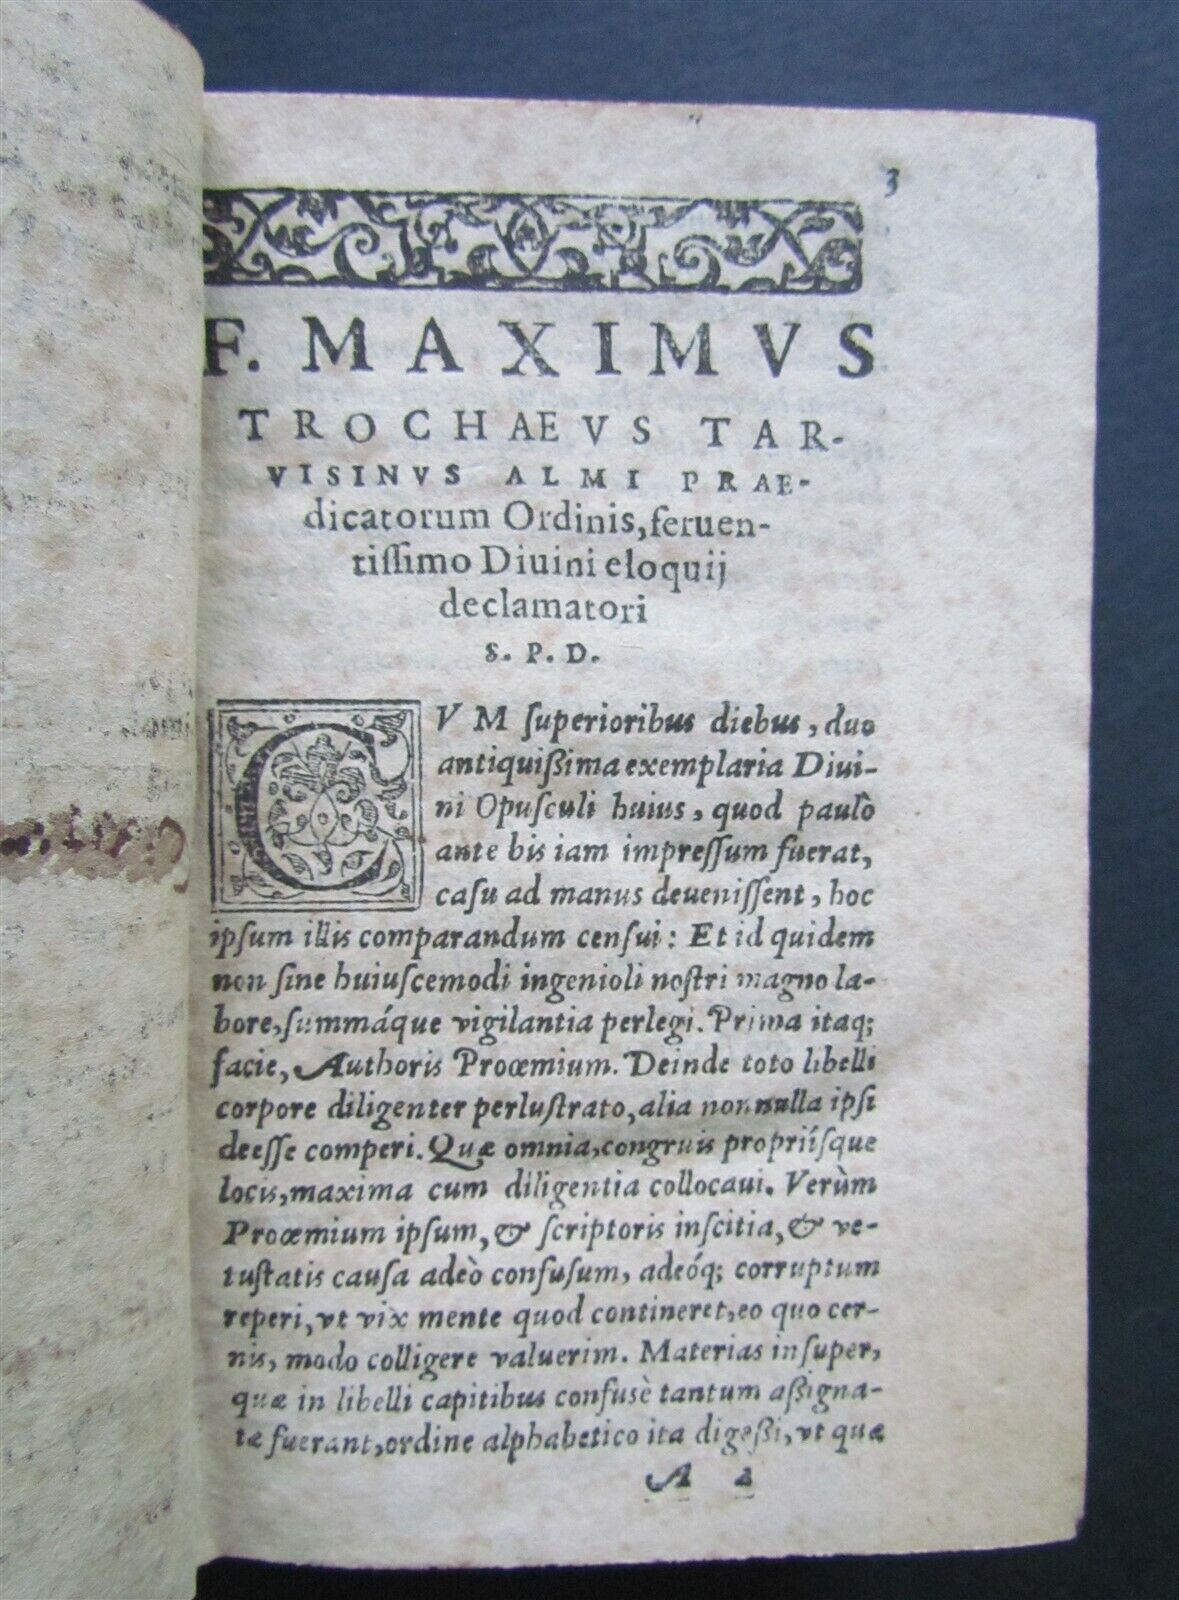 3
F. MAXIMVS
TROCHAEVS TAR-
VISINVS ALMI PRAE-
dicatorum Ordinis, feruen-
tiſſimo Diuini eloquij
declamatori
S. P. D.
CVM ſuperioribus diebus, duo
antiquißima exemplaria Diui-
ni Opuſculi huius, quod paulò
ante bis iam impreſſum fuerat,
caſu ad manus deueniſſent, hoc
ipſum illis comparandum cenſui: Et id quidem
non ſine huiuſcemodi ingenioli noſtri magno la-
bore, ſummáque vigilantia perlegi. Prima itaq;
facie, Authoris Proœmium. Deinde toto libelli
corpore diligenter perluſtrato, alia nonnulla ipſi
deeſſe comperi. Quæ omnia, congruis propriíſque
locis, maxima cum diligentia collocaui. Verùm
Proœmium ipſum, & ſcriptoris inſcitia, & ve-
tuſtatis cauſa adeò confuſum, adeóq; corruptum
reperi, vt vix mente quod contineret, eo quo cer-
nis, modo colligere valuerim. Materias inſuper,
quæ in libelli capitibus confusè tantum aßigna-
tæ fuerant, ordine alphabetico ita digeßi, vt quæ
A 2